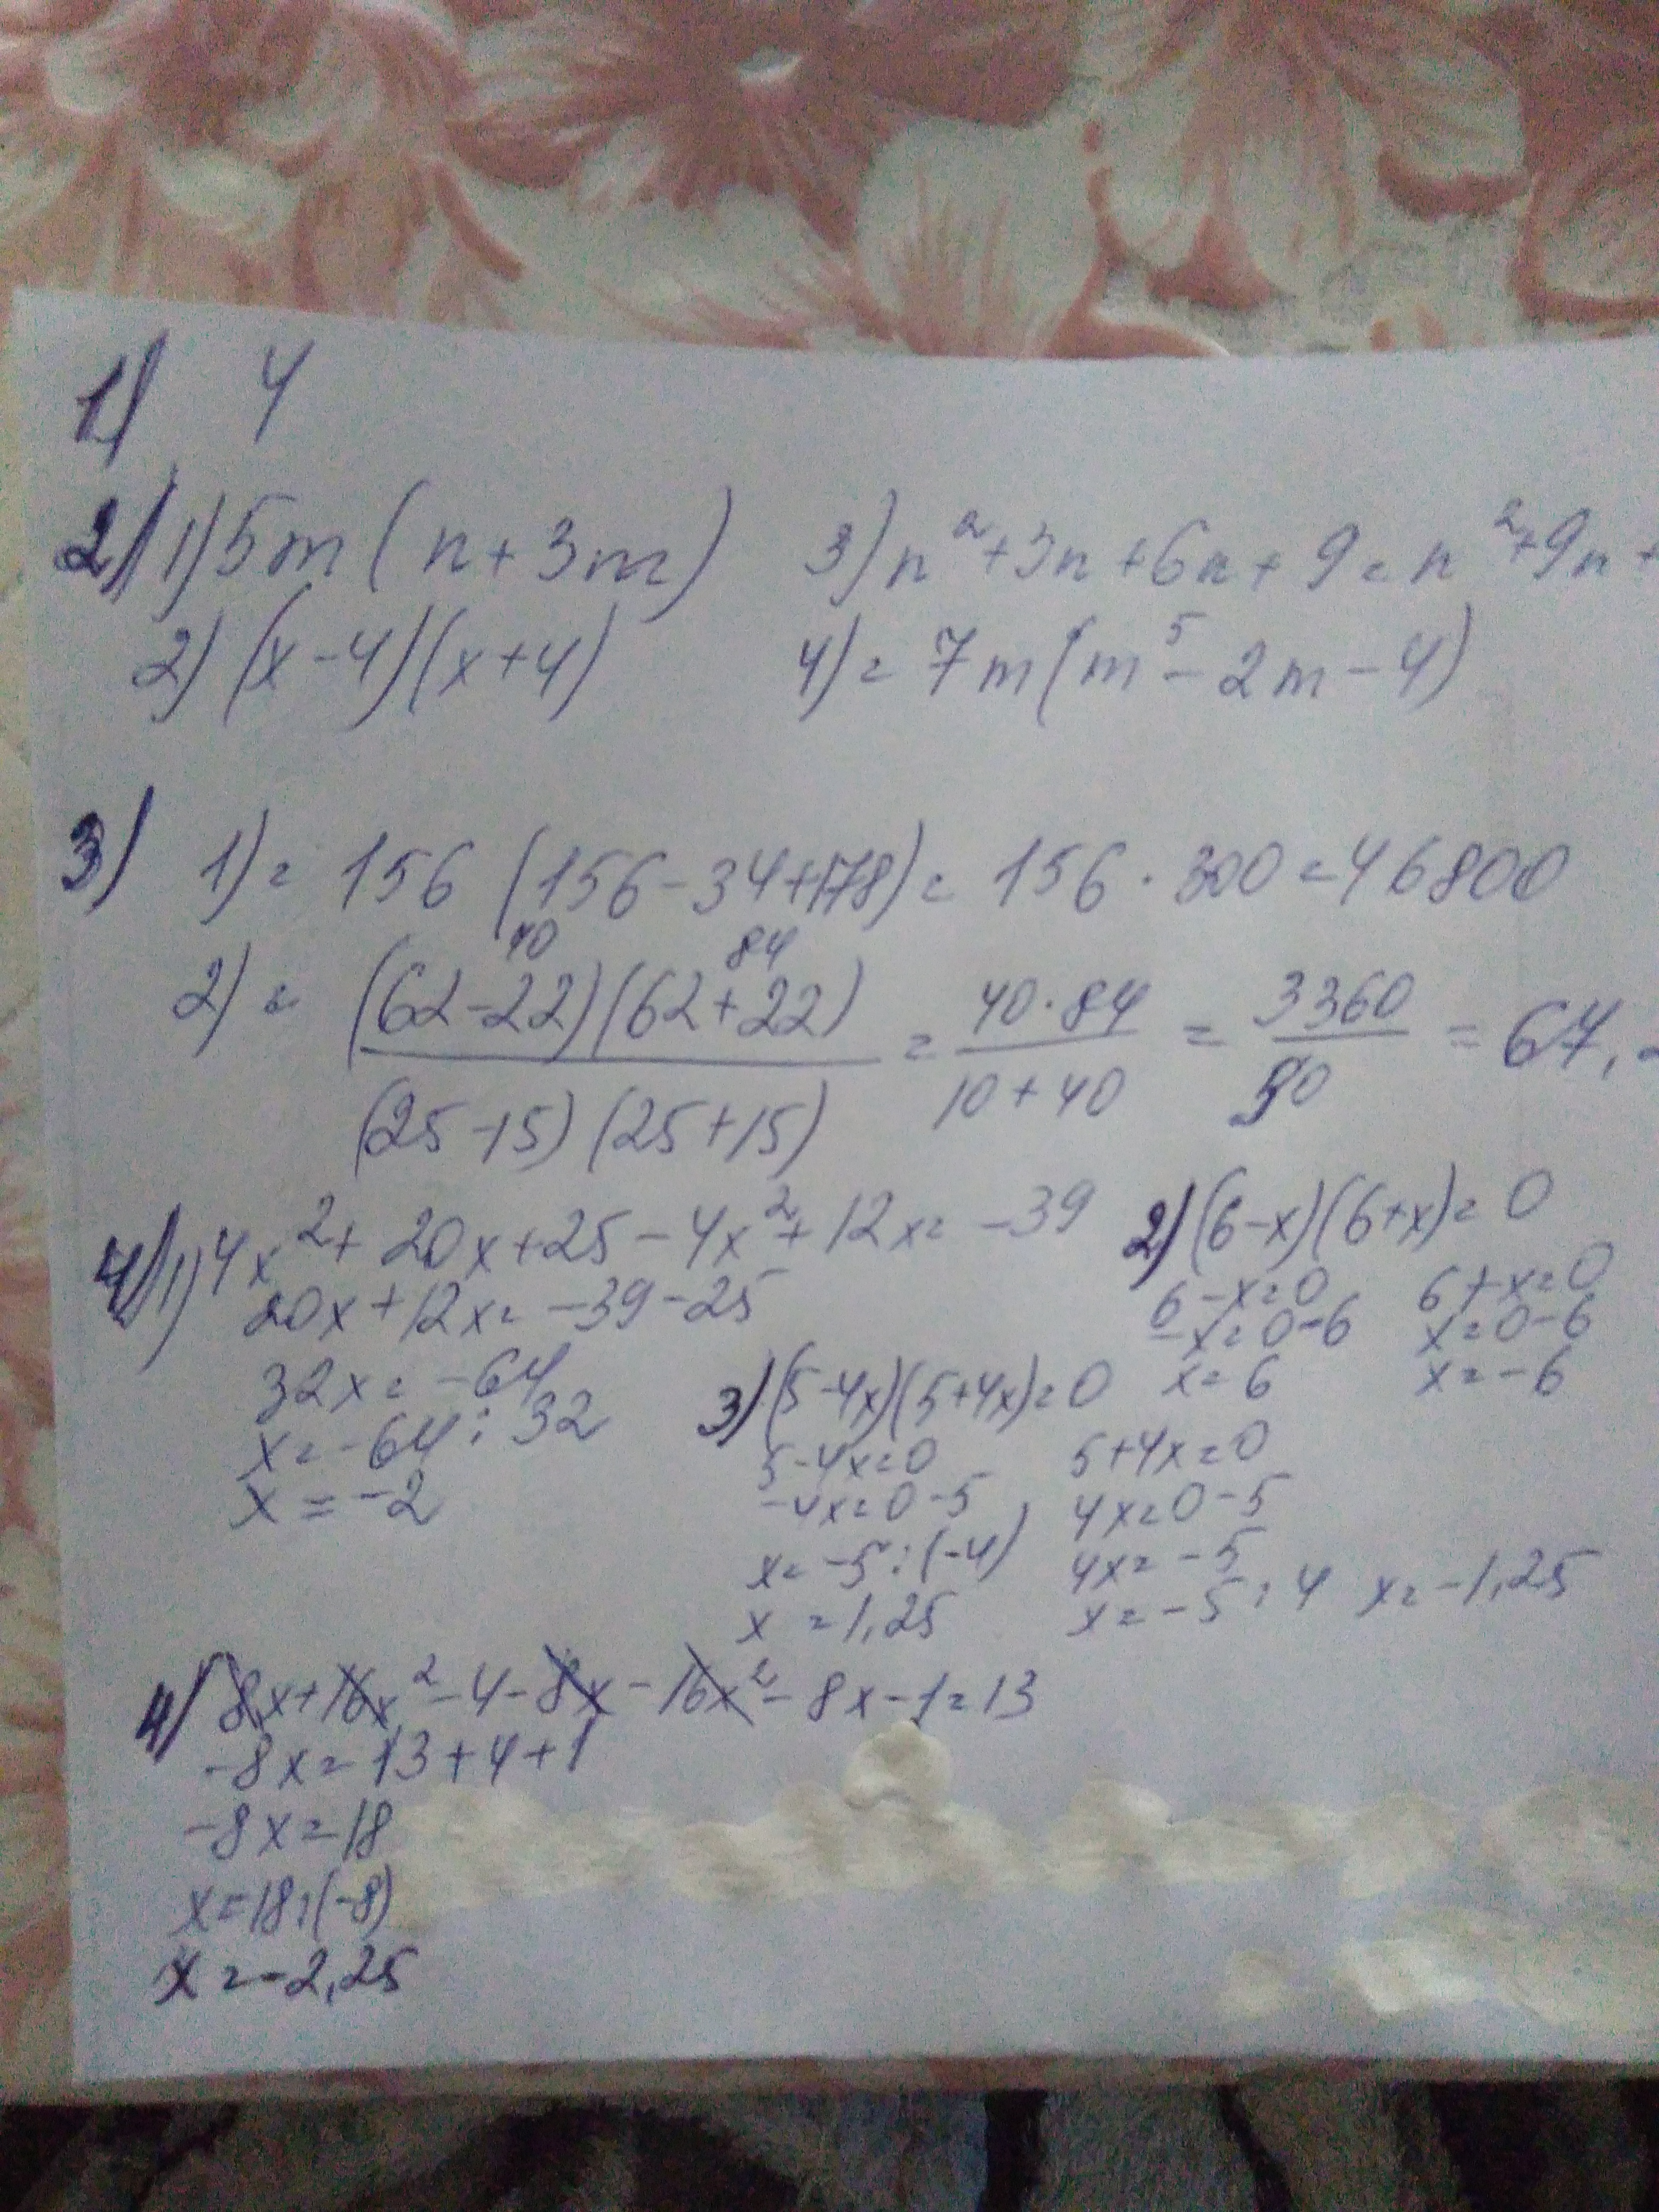 1) 4
2) 1) 5m(n+3m) 3) n²+3n+6n+9=n²+9n+
2) (x-4)(x+4) 4)=7m(m⁵-2m-4)
3) 1)=156(156-34+178)=156·300=46800
40 84
2)= (62-22)(62+22) / (25-15)(25+15) = 40·84 / 10+40 = 3360 / 50 = 67,
4) 1) 4x²+20x+25-4x²+12x=-39
20x+12x=-39-25
32x=-64
x=-64:32
x=-2
2) (6-x)(6+x)=0
6-x=0 6+x=0
-x=0-6 x=0-6
x=6 x=-6
3) (5-4x)(5+4x)=0
5-4x=0 5+4x=0
-4x=0-5 4x=0-5
x=-5:(-4) 4x=-5
x=1,25 x=-5:4 x=-1,25
4) 8x+16x²-4-8x-16x²-8x-1=13
-8x=13+4+1
-8x=18
x=18:(-8)
x=-2,25